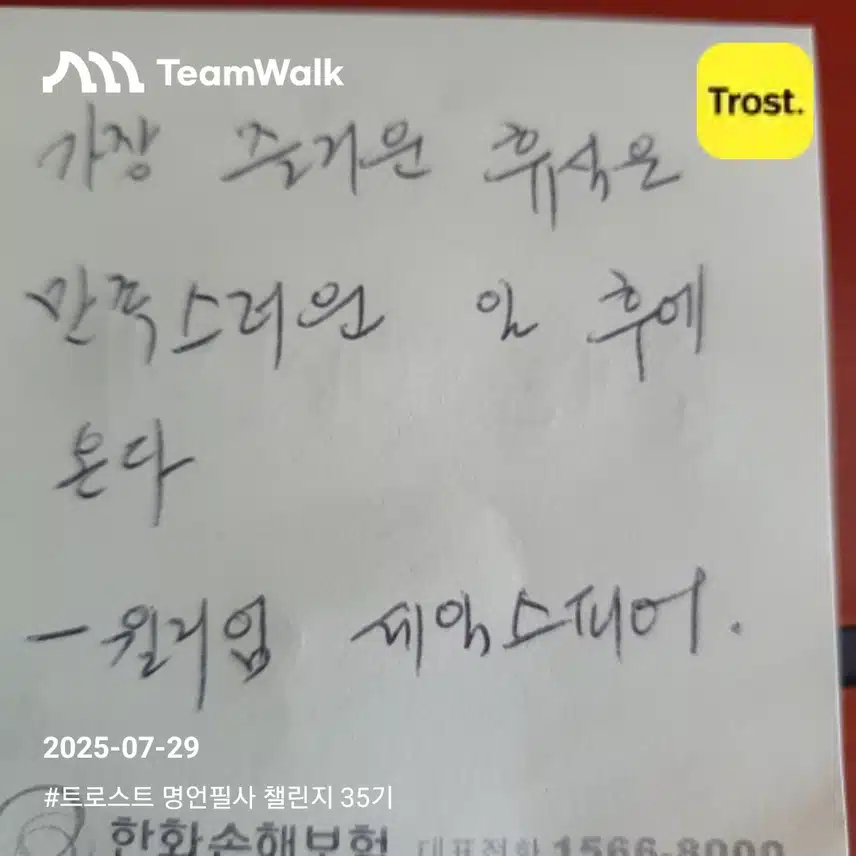 TeamWalk
Trost.
가장 즐거운 휴식은
만족스러운 일 후에
온다
- 윌리엄 셰익스피어.
2025-07-29
#트로스트 명언필사 챌린지 35기
한화손해보험 대표전화 1566-8000